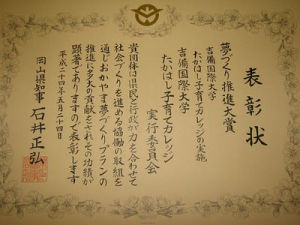 表彰状
夢づくり推進大賞
吉備国際大学
たかはし子育てカレッジの実施
吉備国際大学
たかはし子育てカレッジ
実行委員会
貴団体は県民と行政が力を合わせて
社会づくりを進める協働の取組を
通じおかやま夢づくりプランの
推進に多大の貢献をされその功績が
顕著でありますので表彰します
平成二十四年五月二十四日
岡山県知事 石井正弘